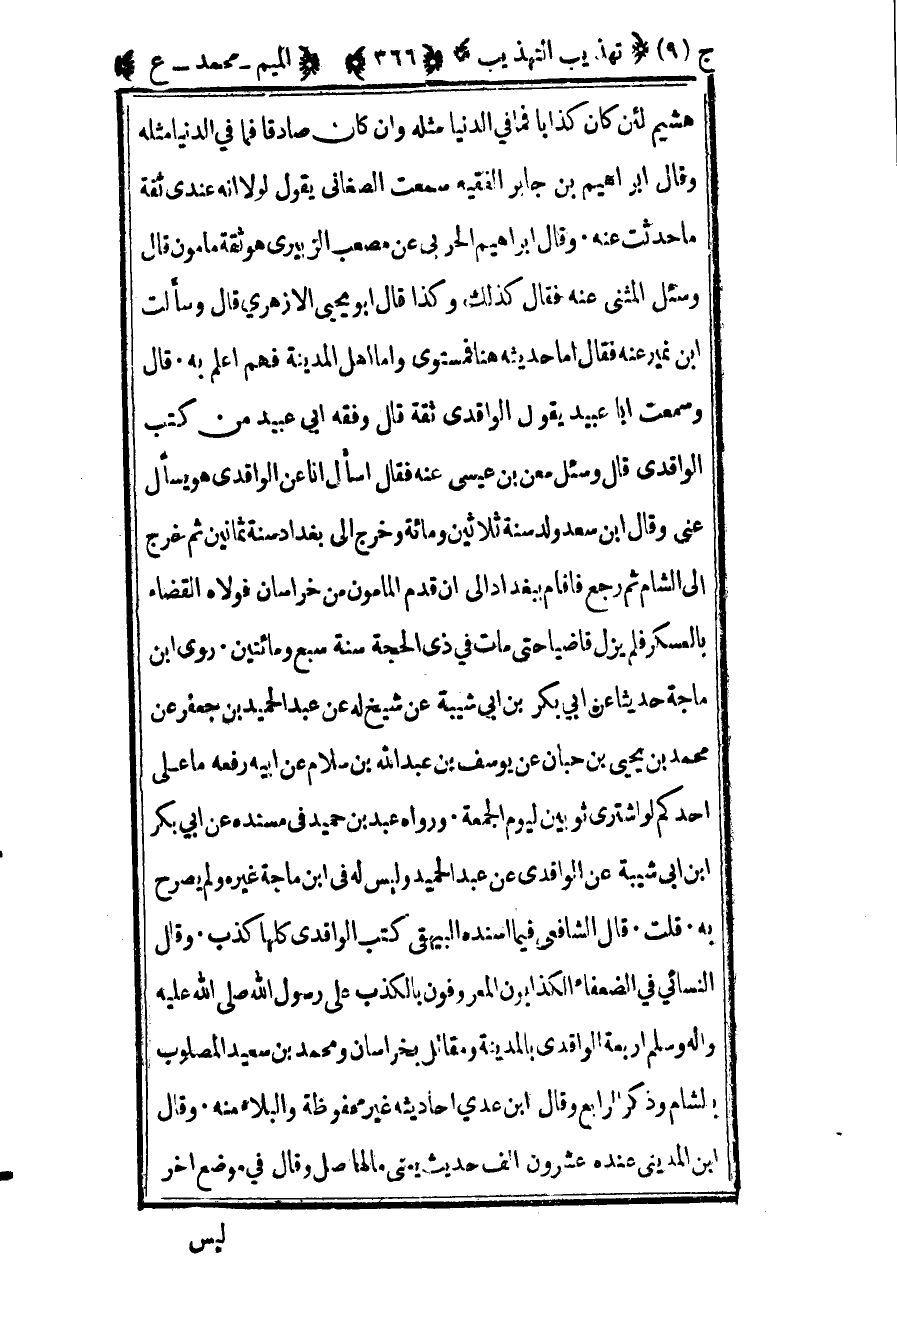 ج (٩) ﴿ تهذيب التهذيب ﴾ ﴿ ٣٦٦ ﴾ ﴿ الميم ـ محمد ـ ع ﴾
هشيم لئن كان كذابا فما في الدنيا مثله وان كان صادقا فما في الدنيا مثله
وقال ابراهيم بن جابر الفقيه سمعت الصغانى يقول لولا انه عندى ثقة
ماحدثت عنه ٠ وقال ابراهيم الحربى عن مصعب الزبيرى هو ثقة مامون قال
وسئل المثنى عنه فقال كذلك، وكذا قال ابو يحيى الازهري قال وسألت
ابن نمير عنه فقال اما حديثه هنا فمستوى واما اهل المدينة فهم اعلم به ٠ قال
وسمعت ابا عبيد يقول الواقدى ثقة قال وفقه ابي عبيد من كتب
الواقدى قال وسئل معن بن عيسى عنه فقال اسأل انا عن الواقدى هو يسأل
عني وقال ابن سعد ولد سنة ثلاثين ومائة وخرج الى بغداد سنة ثمانين ثم خرج
الى الشام ثم رجع فاقام ببغداد الى ان قدم المامون من خراسان فولاه القضاء
بالعسكر فلم يزل قاضيا حتى مات في ذى الحجة سنة سبع ومائتين ٠ روى ابن
ماجة حديثا عن ابي بكر بن ابي شيبة عن شيخ له عن عبد الحميد بن جعفر عن
محمد بن يحيى بن حبان عن يوسف بن عبد الله بن سلام عن ابيه رفعه ما على
احدكم لو اشترى ثوبين ليوم الجمعة ٠ ورواه عبد بن حميد فى مسنده عن ابي بكر
ابن ابى شيبة عن الواقدى عن عبد الحميد وليس له فى ابن ماجة غيره ولم يصرح
به ٠ قلت ٠ قال الشافعي فيما اسنده البيهقي كتب الواقدى كلها كذب ٠ وقال
النسائي في الضعفاء الكذابون المعروفون بالكذب على رسول الله صلى الله عليه
واله وسلم اربعة الواقدى بالمدينة ومقاتل بخراسان ومحمد بن سعيد المصلوب
بالشام وذكر الرابع وقال ابن عدي احاديثه غير محفوظة والبلاء منه ٠ وقال
ابن المدينى عنده عشرون الف حديث يعنى مالها اصل وقال في موضع اخر
ليس